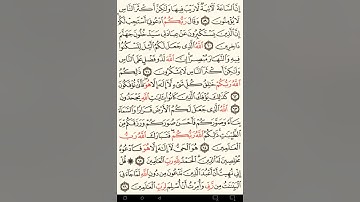 إِنَّ ٱلسَّاعَةَ لَأٓتِيَةٌ لَّا رَيْبَ فِيهَا وَلَٰكِنَّ أَكْثَرَ ٱلنَّاسِ
لَا يُؤْمِنُونَ ۝ وَقَالَ رَبُّكُمُ ٱدْعُونِىٓ أَسْتَجِبْ لَكُمْ
إِنَّ ٱلَّذِينَ يَسْتَكْبِرُونَ عَنْ عِبَادَتِى سَيَدْخُلُونَ جَهَنَّمَ
دَاخِرِينَ ۝ ٱللَّهُ ٱلَّذِى جَعَلَ لَكُمُ ٱلَّيْلَ لِتَسْكُنُوا۟
فِيهِ وَٱلنَّهَارَ مُبْصِرًا إِنَّ ٱللَّهَ لَذُو فَضْلٍ عَلَى ٱلنَّاسِ
وَلَٰكِنَّ أَكْثَرَ ٱلنَّاسِ لَا يَشْكُرُونَ ۝ ذَٰلِكُمُ
ٱللَّهُ رَبُّكُمْ خَٰلِقُ كُلِّ شَىْءٍ لَّآ إِلَٰهَ إِلَّا هُوَ فَأَنَّىٰ تُؤْفَكُونَ
۝ كَذَٰلِكَ يُؤْفَكُ ٱلَّذِينَ كَانُوا۟ بِـَٔايَٰتِ ٱللَّهِ يَجْحَدُونَ
۝ ٱللَّهُ ٱلَّذِى جَعَلَ لَكُمُ ٱلْأَرْضَ قَرَارًا وَٱلسَّمَآءَ
بِنَآءً وَصَوَّرَكُمْ فَأَحْسَنَ صُوَرَكُمْ وَرَزَقَكُم مِّنَ
ٱلطَّيِّبَٰتِ ذَٰلِكُمُ ٱللَّهُ رَبُّكُمْ فَتَبَارَكَ ٱللَّهُ رَبُّ
ٱلْعَٰلَمِينَ ۝ هُوَ ٱلْحَىُّ لَآ إِلَٰهَ إِلَّا هُوَ فَٱدْعُوهُ
مُخْلِصِينَ لَهُ ٱلدِّينَ ٱلْحَمْدُ لِلَّهِ رَبِّ ٱلْعَٰلَمِينَ ۝ قُلْ
إِنِّى نُهِيتُ أَنْ أَعْبُدَ ٱلَّذِينَ تَدْعُونَ مِن دُونِ ٱللَّهِ لَمَّا جَآءَنِىَ
ٱلْبَيِّنَٰتُ مِن رَّبِّى وَأُمِرْتُ أَنْ أُسْلِمَ لِرَبِّ ٱلْعَٰلَمِينَ ۝